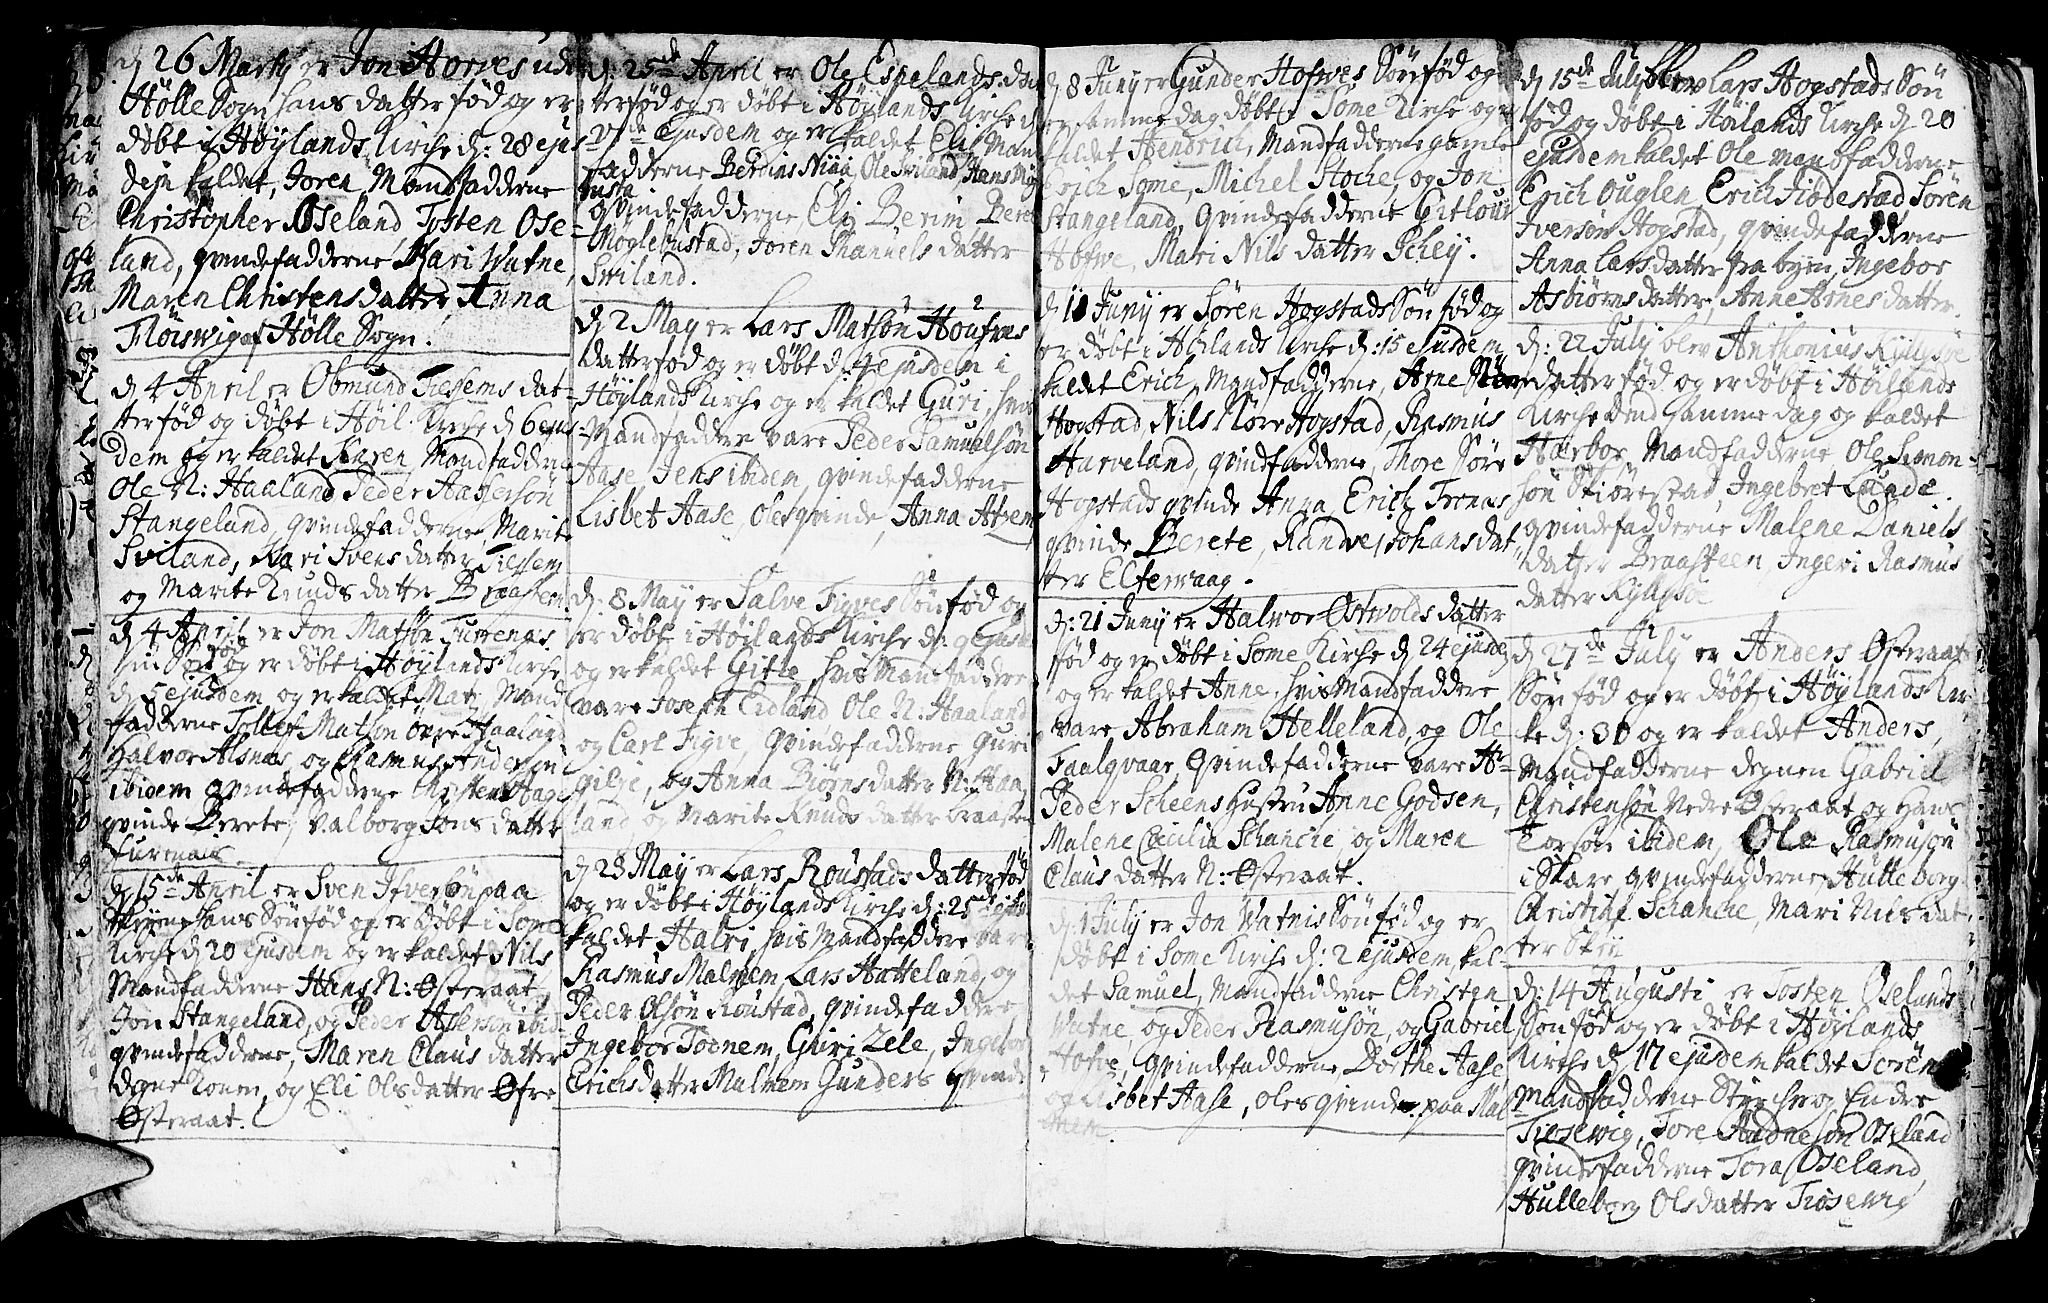 d 26 Martij er Jon Horves udi
Hölle Sogn hans datter fød og er
døbt i Høÿlands Kirche d: 28 ejus
dem kaldet, Joren Mandfadderne
Christopher Oseland Tosten Ose-
land, qvindefadderne Kari Watne,
Maren Christensdatter, Anna
Fløiswig af Hölle Sogn.
d 4 April er Obmund Tiessems dat-
ter fød og døbt i Høil: Kirche d 6 ejus
dem og er kaldet Karen, Mandfadderne
Ole N: Haaland Peder Aassersön
Stangeland, qvindefadderne Marite
Sviland, Kari Svens datter Tiessem
og Marite Knuds datter Braasteen
d 4 April er Jon Matsön Furrenas
Sön fød og er døbt i Høÿlands Kirche
d 5 ejusdem og er kaldet Matz, Mand
fadderne Tollef Matsön øvre Haaland
Halvor Alsnas, og Rasmus Andersen
ibidem qvindefadderne Christen Aase
qvinde Berete, Valborg Jons datter
Furenais.
d 15de April er Sven Ifversön paa
hans Sön fød og er døbt i Some
Kirche d 20 ejusdem og er kaldet Nils
Mandfadderne Hans N: Østeraat,
Jon Stangeland, og Peder Assersön ibid
qvindefadderne, Maren Claus datter
Konen, og Eli Olsdatter Øfre
Østeraat.
d: 25de April er Ole Espelands dat
ter fød og er døbt i Høÿlands Kirche d
ejusdem og er kaldet Eli, Mand
fadderne Berdines Ole Sviland, Hans
qvindefadderne, Elij Berim Berete
Møglebustad, Joren Samuels datter
Sviland.
d 2 May er Lars Matsön Houfves
datter fød og er døbt d: 4 ejusdem i
Høÿlands Kirche og er kaldet Guri, hvis
Mandfaddere vare Peder Samuelsön
Aase, Jens ibidem, qvindefadderne
Lisbet Aase, Oles qvinde, Anna
d: 8 May er Salve Figves Sön fød og
er døbt i Høilands Kirche d: 9 ejusdem
og er kaldet Gitle hvis Mandfaddere
vare Joseph Eidland Ole N: Haaland
og Carl Figve, Qvindefadderne Guri
Gilje, og Anna Biörnsdatter N: Haa
land, og Marite Knuds datter Braasteen
d 23 May er Lars Roustads datter fød
og er døbt i Høÿlands Kirche d: 25 ejus
kaldet Halvi, hvis Mandfaddere vare
Rasmus Malmem, Lars Hatteland, og
Peder Olsön Roustad, qvindefaddere
Ingebor Todnem, Guri Zele, Ingebor
Erichsdatter Malmem Gunders qvinde
d 8 Junij er Gunder Hofwes Sön fød og
er samme dag døbt i Some Kirche og er
kaldet Hendrich, Mandfadderne gamle
Erich Some, Michel Stoche, og Jon
Stangeland, Qvindefadderne Gitlou
Hofwe, Mari Nils datter Scheÿ.
d 10 Junij er Sören Hogstads Sön fød og
er døbt i Høilands Kirche d: 15 ejusdem
kaldet Erich, Mandfadderne, Arne Store
Hogstad, Nils Nörre Hogstad, Rasmus
Harveland, qvindfadderne, Thore Söre
Hogstads qvinde Anna, Erich Trones
qvinde Berete, Randve Johans dat
ter Elferwaag.
d: 21 Junij er Halvor Østwolds datter
fød og er døbt i Some Kirche d 24 ejusdem
og er kaldet Anne, hvis Mandfaddere
vare Abraham Helleland, og Ole
Faalqvaar, Qvindefadderne vare Hr
Peder Scheens Hustru Anne Godsen,
Malene Cecilia Schancke, og Maren
Claus datter N: Østeraat.
d: 1 July er Jon Watnis Sön fød og er
døbt i Some Kirche d: 2 ejusdem, kal-
det Samuel, Mandfadderne Christen
Watne, og Peder Rasmusön, og Gabriel
Hofve, Qvindefadderne, Dorthe Aase
og Lisbet Aase, Oles qvinde paa Mal
mem.
d 15de July blev Lars Hogstads Sön
fød og døbt i Høilands Kirche d 20
ejusdem kaldet Ole Mandfadderne
Erich Ouglen, Erich Fiödestad Sören
Iversön Hogstad, qvindefadderne
Anna Lars datter fra byen, Ingebor
Asbiörns datter, Anne Arnes datter.
d: 22 July blev Anthonius Kyllesöe
datter fød og er døbt i Høilands
Kirche dend samme dag og kaldet
Herbor, Mandfadderne Ole Simon
sön Skiörestad Ingebret Lunde.
qvindefadderne Malene Daniels
datter Braasteen, Ingeri Rasmus
datter Kyllesöe
d 27de July er Anders Østeraats
Sön fød og er døbt i Høÿlands Kir-
ke d: 30 og er kaldet Anders,
Mandfadderne degnen Gabriel
Christensön Nedre Østeraat og Hans
Torsön ibidem, Ole Rasmusön
i Skare, qvindefadderne, Hulleborg
Christine Schancke, Mari Nils dat
ter Skeij
d: 14 Augusti er Tosten Oselands
Sön fød og er døbt i Høÿlands
Kirche d 17 ejusdem kaldet Sören
Mandfadderne Styrcher og Endre
Tiösewig, Tore Aadnesön Oseland
qvindefadderne Tora Oseland,
Hulleborg Olsdatter Tiösewig